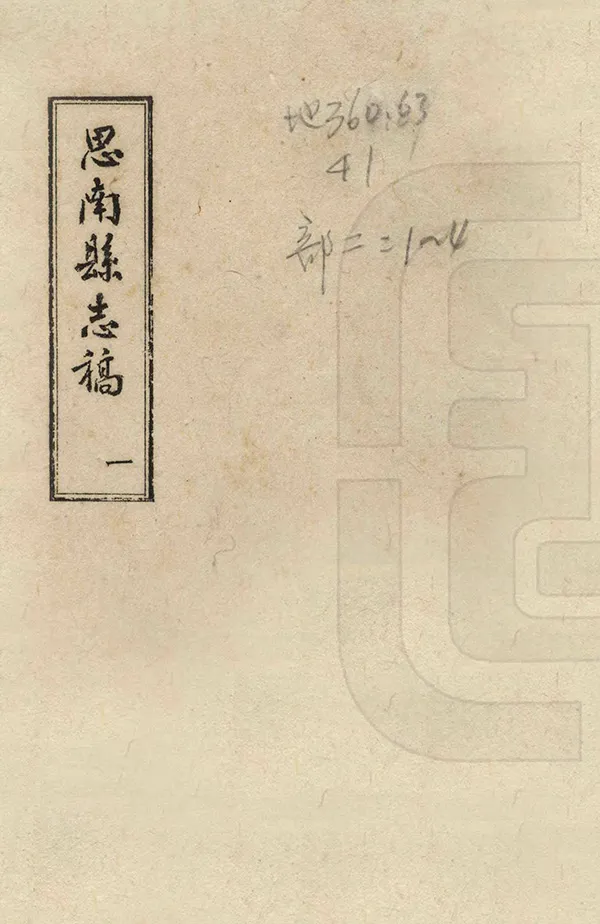 思南縣志稿
一
地360.63
41
部二:1~4